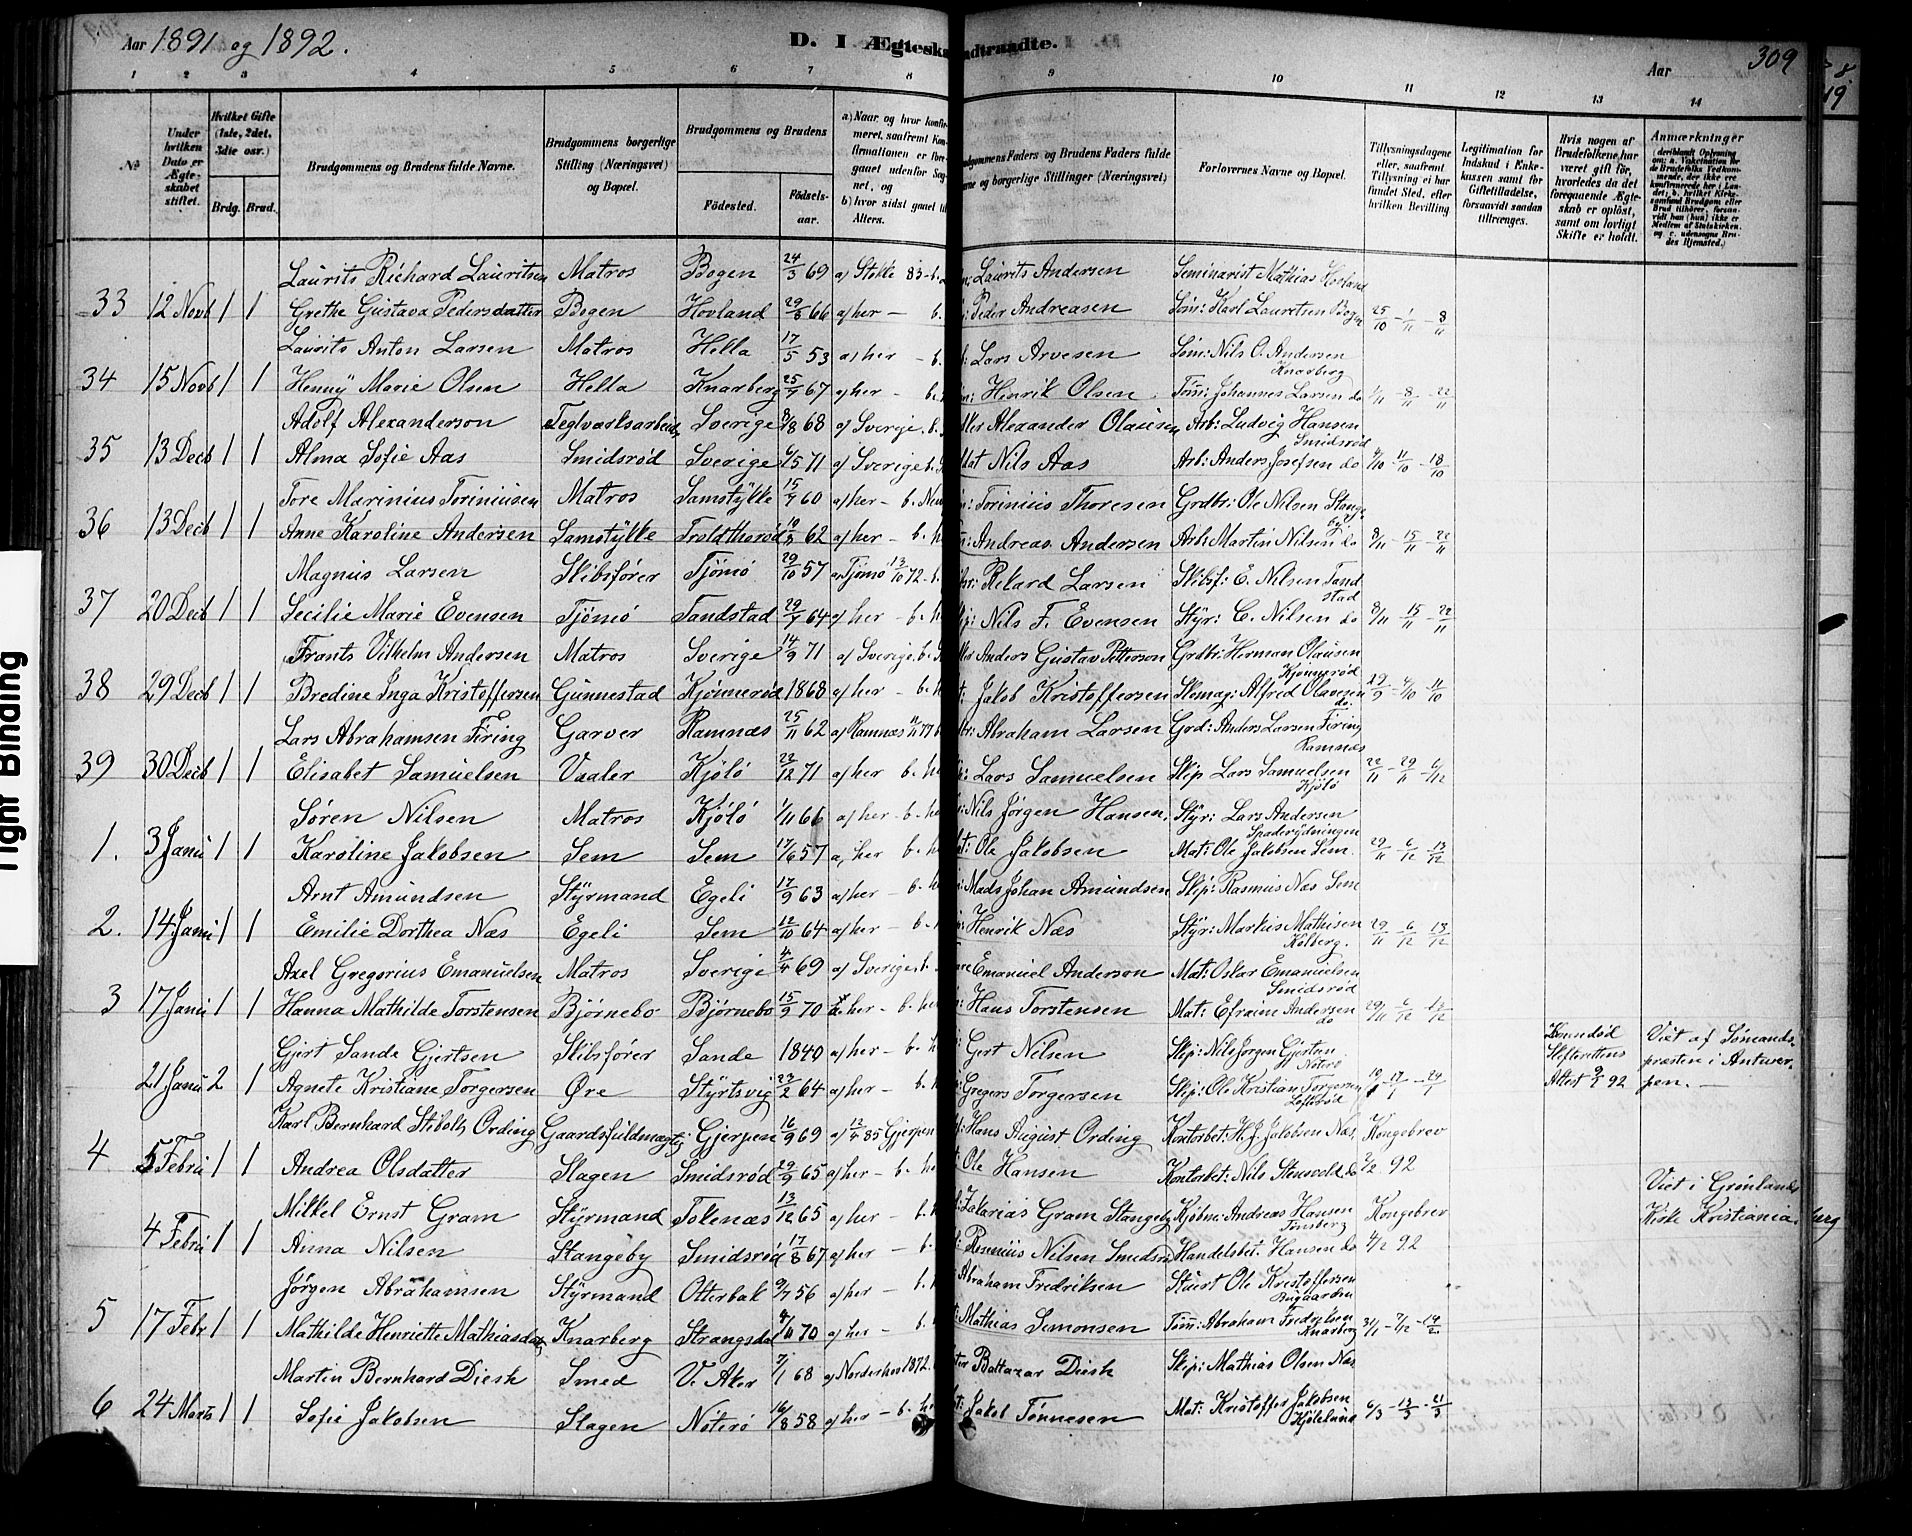 Aar 1891 og 1892.
D. I Ægteskab
Indtraadte.
Aar
309
1 2 3 4 5 6 7 8 9 10 11 12 13 14
No
Under hvilken Dato er Ægteskabet stiftet.
Hvilket Gifte (1ste, 2det, 3die osv.)
Brdg. Brud.
Brudgommens og Brudens fulde Navne.
Brudgommens borgerlige Stilling (Næringsvei) og Bopæl.
Brudgommens og Brudens
Fødested.
Fødselsaar.
Forlovernes Navne og Bopæl.
Tillysningsdagene eller, saafremt Tillysning ei har fundet Sted, efter hvilken Bevilling
Legitimation for Indskud i Enkekassen samt for Giftetilladelse, forsaavidt saadan tiltrænges.
Hvis nogen af Brudefolkene har været gift før, hvorledes da det foregaaende Ægteskab er opløst, samt om lovligt Skifte er holdt.
Anmærkninger
Laurits Richard Lauritsen Matros Bogen 24/3 69 a) Stokke 83 - b. Laurits Andersen Seminarist Mathias Hovland
33 12 Novb 1 1 Grethe Gustava Pedersdatter Bogen Hovland 29/8 66 a) her - b. Peder Andreasen Søm: Karl Lauritsen Bogen 25/10 - 1/11 - 8/11
Laurits Anton Larsen Matros Hella 17/5 53 a) her - b. Lars Arvesen Søm: Nils O. Andersen Knarberg
34 15 Novb 1 1 Henny Marie Olsen Hella Knarberg 25/7 67 a) her - b. Henrik Olsen Tøm: Johannes Larsen do 1/11 - 8/11 - 22/11
Adolf Alexanderson Teglværksarbeid. Sverige 8/8 68 a) Sverige. b. Alexander Olausen Arb: Ludvig Hansen Smidsrød
35 13 Decb 1 1 Alma Sofie Aas Smidsrød Sverige 6/5 71 a) Sverige b. Nils Aas Arb: Anders Josefsen do 4/10 - 11/10 - 18/10
Tore Marinius Toriniusen Matros Samstykke 15/7 60 a) her - b. Torinius Thoresen Grdbr: Ole Nilsen Stangeby
36 13 Decb 1 1 Anne Karoline Andersen Samstykke Troldthorød 10/3 62 a) her - b. Andreas Andersen Arb: Martin Nilsen do 8/11 - 15/11 - 22/11
Magnus Larsen Skibsfører Tjömö 29/10 57 a) Tjömö 13/10 72 - b. Rikard Larsen Skibsf: E. Nilsen Tandstad
37 20 Decb 1 1 Secilie Marie Evensen Tjömö Tandstad 29/7 64 a) her - b. Nils F. Evensen Styr: C. Nilsen do 8/11 - 15/11 - 22/11
Frants Vilhelm Andersen Matros Sverige 14/9 71 a) Sverige. b. Anders Gustav Petterson Grdbr: Herman Olausen Kjønnerød
38 29 Decb 1 1 Bredine Inga Kristoffersen Gunnestad Kjønnerød 1868 a) her - b. Jakob Kristoffersen Skomag: Alfred Olavesen do. 19/9 - 4/10 - 11/10
Lars Abrahamsen Firing Garver Ramnæs 25/11 62 a) Ramnæs Abraham Larsen Grd: Anders Larsen Firing Ramnæs
39 30 Decb 1 1 Elisabet Samuelsen Vaaler Kjölö 22/12 71 a) her b. Lars Samuelsen Skip Lars Samuelsen Kjölö 22/11 - 29/11 - 6/12
Søren Nilsen Matros Kjölö 1/11 66 a) her - b. Nils Jørgen Hansen. Styr: Lars Andersen
1. 3 Janu 1 1 Karoline Jakobsen Sem Sem 17/6 57 a) her b. Ole Jakobsen Mat: Ole Jakobsen Sem. 29/11 - 6/12 - 13/12
Arnt Amundsen Styrmand Egeli 17/9 63 a) her - b. Mads Johan Amundsen Skip: Rasmus Næs Sem
2. 14 Janu 1 1 Emilie Dorthea Næs Egeli Sem 12/10 64 a) her - b. Henrik Næs Styr: Markus Mathisen Kolberg. 29/11 - 6/12 - 13/12
Axel Gregorius Emanuelsen Matros Sverige 4/4 69 a) Sverige. b. Emanuel Anderson Mat: Oskar Emanuelsen Smidsrød
3 17 Janu 1 1 Hanna Mathilde Torstensen Bjørnebo Bjørnebo 15/9 70 her - b. Hans Torstensen Mat: Efraim Andersen do 29/11 - 6/12 - 13/12
Gjert Sande Gjertsen Skibsfører Sande 1840 a) her - b. Gert Nilsen Skip: Nils Jørgen Gjertsen Nøterø Konen død Skifterettens Attest 9/1 92 Viet af Sømandspresten i Antwerpen. -
21 Janu 2 1 Agnete Kristiane Torgersen Øre Styrtsvig 23/2 64 a) her - b. Gregers Torgersen Skip: Ole Kristian Torgersen 10/1 - 17/1 - 24/1
Karl Bernhard Stibolt Ording Gaardsfuldmægtig Gjerpen 16/9 69 a) 12/4 85 Gjerpen Hans August Ording Kontorbet: H. J. Jakobsen Næs, Kongebrev
4 5 Febru 1 1 Andrea Olsdatter Slagen Smidsrød 29/9 65 a) her - b. Ole Hansen Kontorbet: Nils Stensvold do 3/2 92
Mikkel Ernst Gram Styrmand Tokenæs 13/12 65 a) her - b. Zakarias Gram Stangeby Kjøbm: Andreas Hansen Tønsberg Kongebrev Viet i Grønlands Kirke Kristiania.
4 Febru 1 1 Anna Nilsen Stangeby Smidsrød 17/8 67 a) her - b. Rasmus Nilsen Smidsrø Handelsbet. Hansen do 4/2 92
Jørgen Abrahamsen Styrmand Otterbæk 9/7 56 a) her - b. Abraham Fredriksen Stuert Ole Kristoffersen Bugaarden
5 17 Febr 1 1 Mathilde Henriette Mathiasdat. Knarberg Strangsdal 70 a) her - b. Mathias Simonsen Tøm: Abraham Fredriksen Knarberg 31/1 - 7/2 - 14/2
Martin Bernhard Diesk Smed V. Aker 7/1 68 a) Norderhov 1872. Baltazar Diesk Skip: Mathias Olsen Næs
6 24 Marts 1 1 Sofie Jakobsen Slagen Nöterö 16/8 58 a) her - b. Jakob Tønnesen Mat: Kristoffer Jakobsen 6/3 - 13/3 - 21/3
Tight Binding